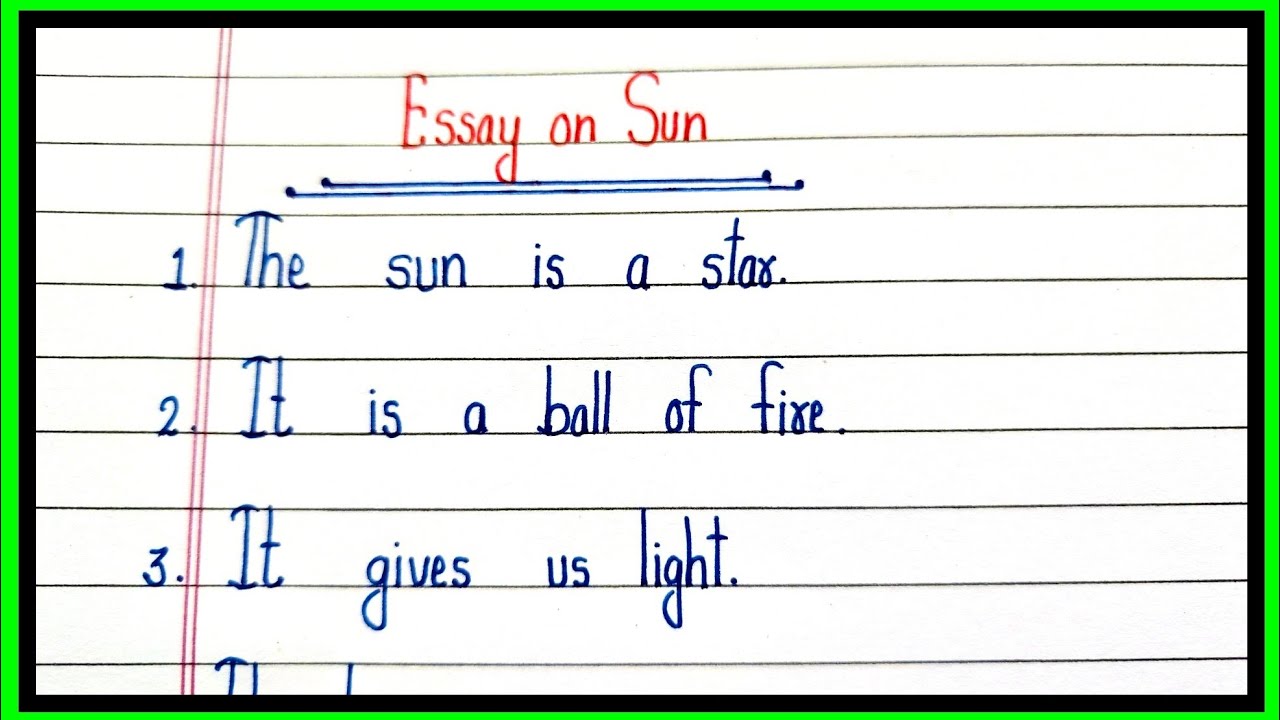 Essay on Sun
1. The sun is a star.
2. It is a ball of fire.
3. It gives us light.